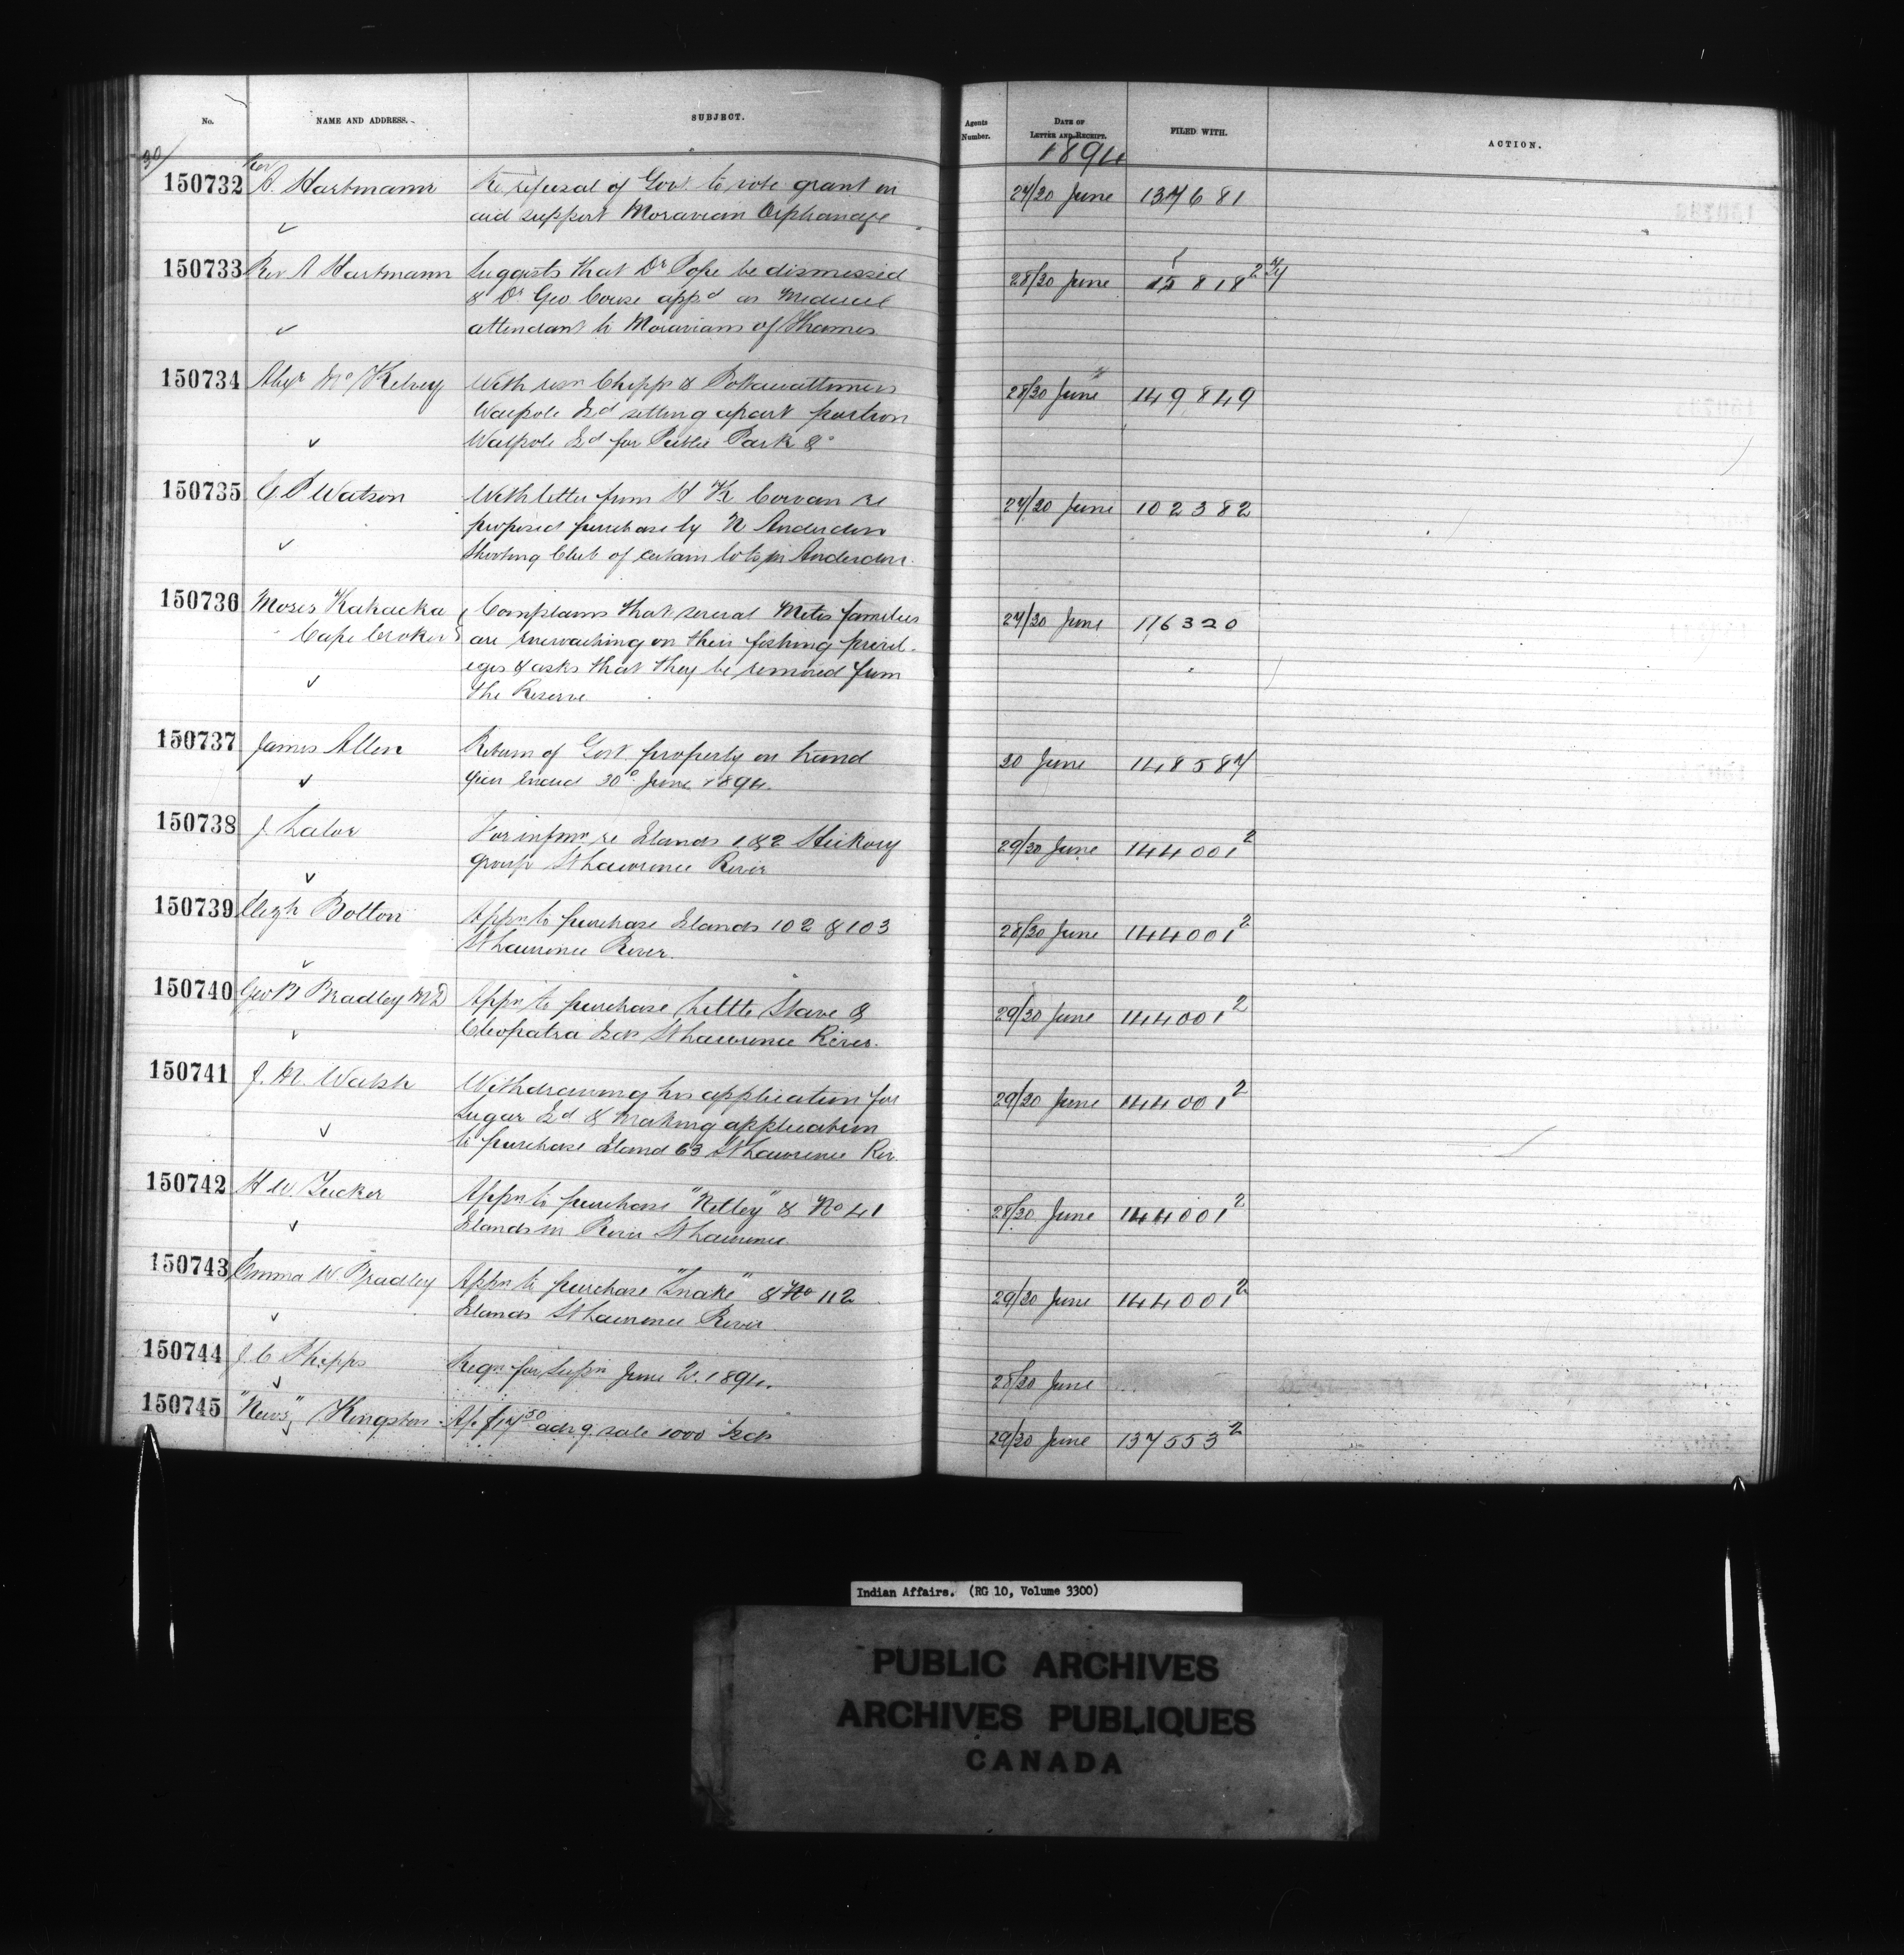 No. NAME AND ADDRESS. SUBJECT. Agents Number. DATE OF LETTER AND RECEIPT. FILED WITH. ACTION.
1894
30/
150732 Rev A. Hartmann Re refusal of Govt to vote grant in 27/30 June 137681
aid support Moravian Orphanage
150733 Rev A Hartmann Suggests that Dr Pope be dismissed 28/30 June 15818 2
& Dr Geo Couse appd as Medical
attendant to Moravians of Thames
150734 Alexr Mc Kelvey With resn Chipps & Pottawattamies 28/30 June 149849
Walpole Id setting apart portion
Walpole Id for Public Park &c
150735 C P Watson With letter from H K Cowan re 27/30 June 102382
proposed purchase by N Anderdon
Shooting Club of certain lots in Anderdon.
150736 Moses Kahacka Complains that several Metis families 27/30 June 116320
Cape Croker are encroaching on their fishing privil-
eges & asks that they be removed from
the Reserve
150737 James Allen Return of Govt property on hand 30 June 148587
year ended 30th June 1894.
150738 J. Lalor For infmn re Islands 1 & 2 Hickory 29/30 June 144001 2
group St Lawrence River
150739 Elizh Bolton Appn to purchase Islands 102 & 103 28/30 June 144001 2
St Lawrence River.
150740 Geo B Bradley MD Appn to purchase Little Stave & 29/30 June 144001 2
Cleopatra Ids St Lawrence River.
150741 J. M. Walsh Withdrawing his application for 29/30 June 144001 2
Sugar Id & making application
to purchase Island 63 St Lawrence Riv.
150742 H W. Tucker Appn to purchase "Netley" & No 41 28/30 June 144001 2
Islands in River St Lawrence
150743 Emma W. Bradley Appn to purchase "Snake" & No 112 29/30 June 144001 2
Islands St Lawrence River
150744 J. C Phipps Reqn for supn June Qr. 1894. 28/30 June
150745 "News" Kingston Ac $17 50 advg. sale 1000 Isds 29/30 June 137553 2
Indian Affairs. (RG 10, Volume 3300)
PUBLIC ARCHIVES
ARCHIVES PUBLIQUES
CANADA